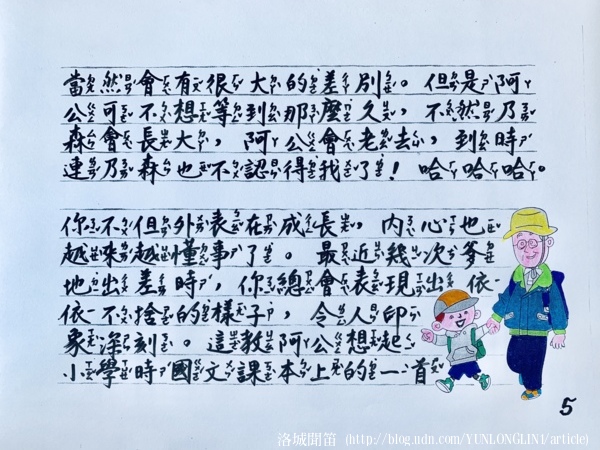 當然會有很大的差別。但是阿
公可不想等到那麼久，不然乃
森會長大，阿公會老去，到時
連乃森也不認得我了！哈哈哈。
你不但外表在成長，內心也
越來越懂事了。最近幾次爹
地出差時，你總會表現出依
依不捨的樣子，令人印
象深刻。這教阿公想起
小學時國文課本上的一首
5
洛城聞笛 (http://blog.udn.com/YUNLONGLIN1/article)